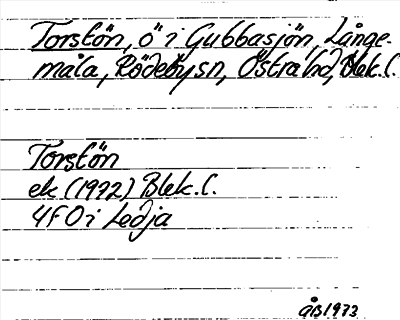 Torstön, ö i Gubbasjön, Långe-
måla, Rödebysn, Östra hd, Blek. l.
Torstön
ek (1972) Blek. l.
4f 0 i Ledja
åls 1973